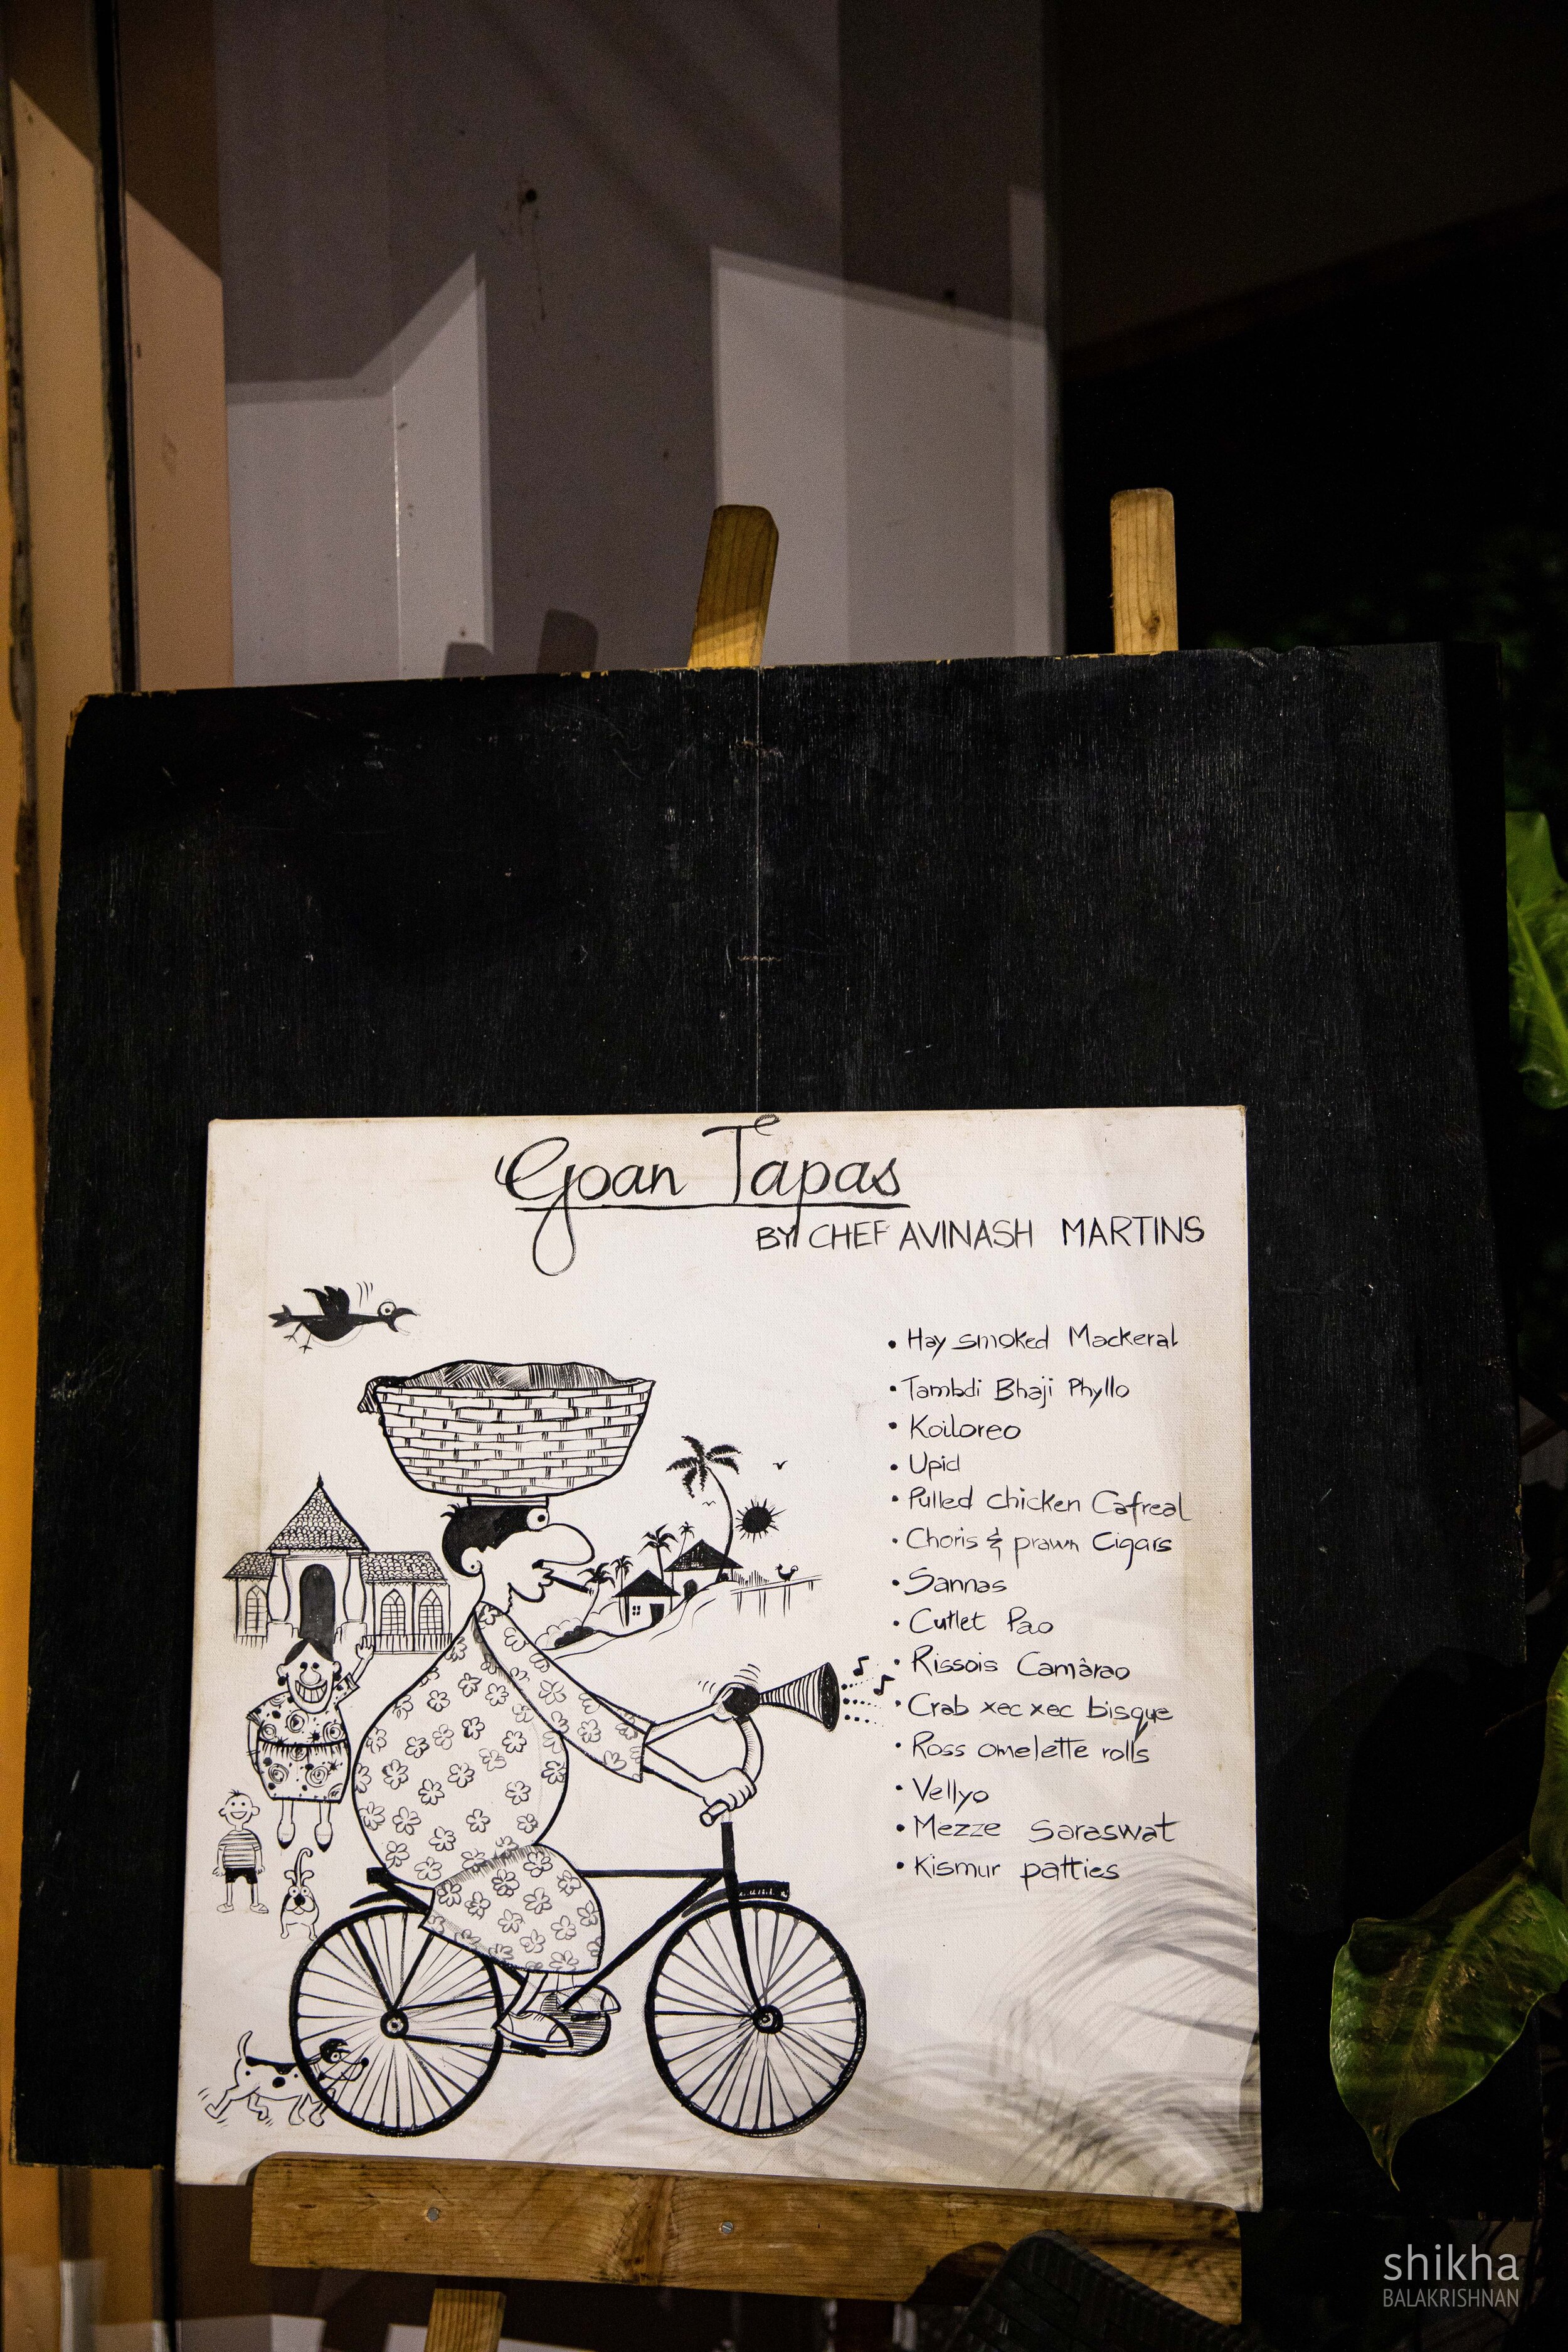 Goan Tapas
BY CHEF AVINASH MARTINS
• Hay smoked Mackeral
• Tambdi Bhaji Phyllo
• Koiloreo
• Upid
• Pulled chicken Cafreal
• Choris & prawn Cigars
• Sannas
• Cutlet Pao
• Rissois Camârao
• Crab xec xec bisque
• Ross omelette rolls
• Vellyo
• Mezze Saraswat
• Kismur patties
shikha
BALAKRISHNAN